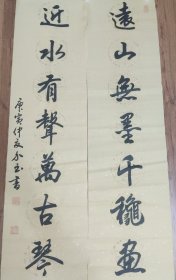 遠山無墨千龝畫
近水有聲萬古琴
庚寅仲夏
書